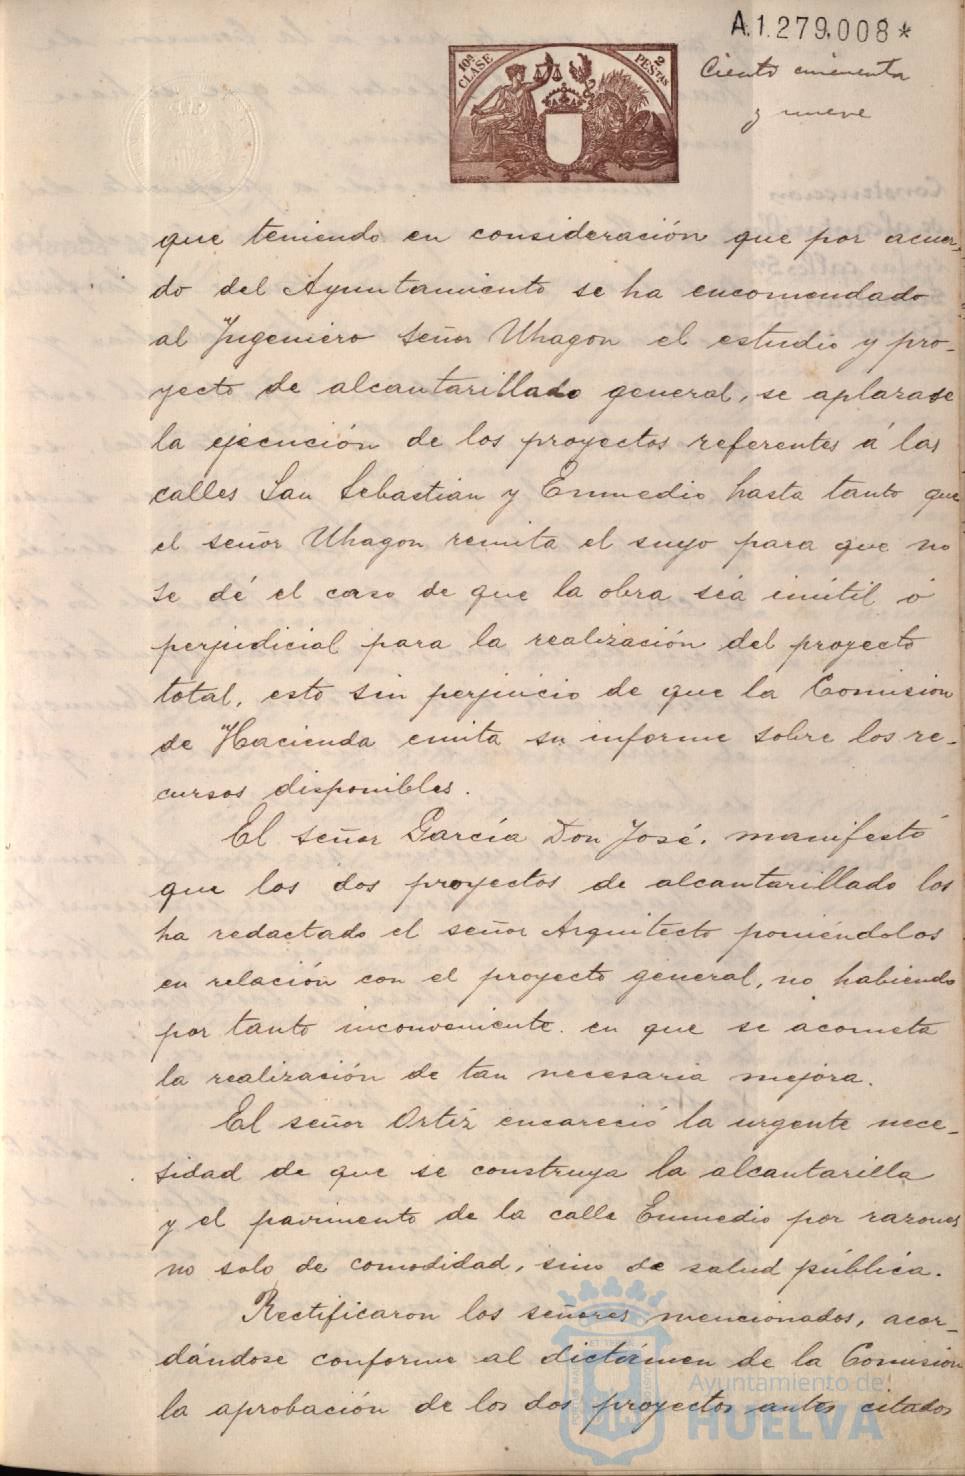 A.1.279.008*
10ª CLASE
2 PESTAS
Ciento cincuenta
y nueve
que teniendo en consideración que por acuer-
do del Ayuntamiento se ha encomendado
al Ingeniero señor Uhagon el estudio y pro-
yecto de alcantarillado general, se aplazase
la ejecución de los proyectos referentes á las
calles San Sebastian y Enmedio hasta tanto que
el señor Uhagon remita el suyo para que no
se dé el caso de que la obra sea inútil ó
perjudicial para la realización del proyecto
total, esto sin perjuicio de que la Comision
de Hacienda emita su informe sobre los re-
cursos disponibles.
El señor García Don José, manifestó
que los dos proyectos de alcantarillado los
ha redactado el señor Arquitecto poniéndolos
en relación con el proyecto general, no habiendo
por tanto inconveniente en que se acometa
la realización de tan necesaria mejora.
El señor Ortiz encareció la urgente nece-
sidad de que se construya la alcantarilla
y el pavimento de la calle Enmedio por razones
no solo de comodidad, sino de salud pública.
Rectificaron los señores mencionados, acor-
dándose conforme al dictámen de la Comisión
la aprobación de los dos proyectos antes citados
Ayuntamiento de
HUELVA